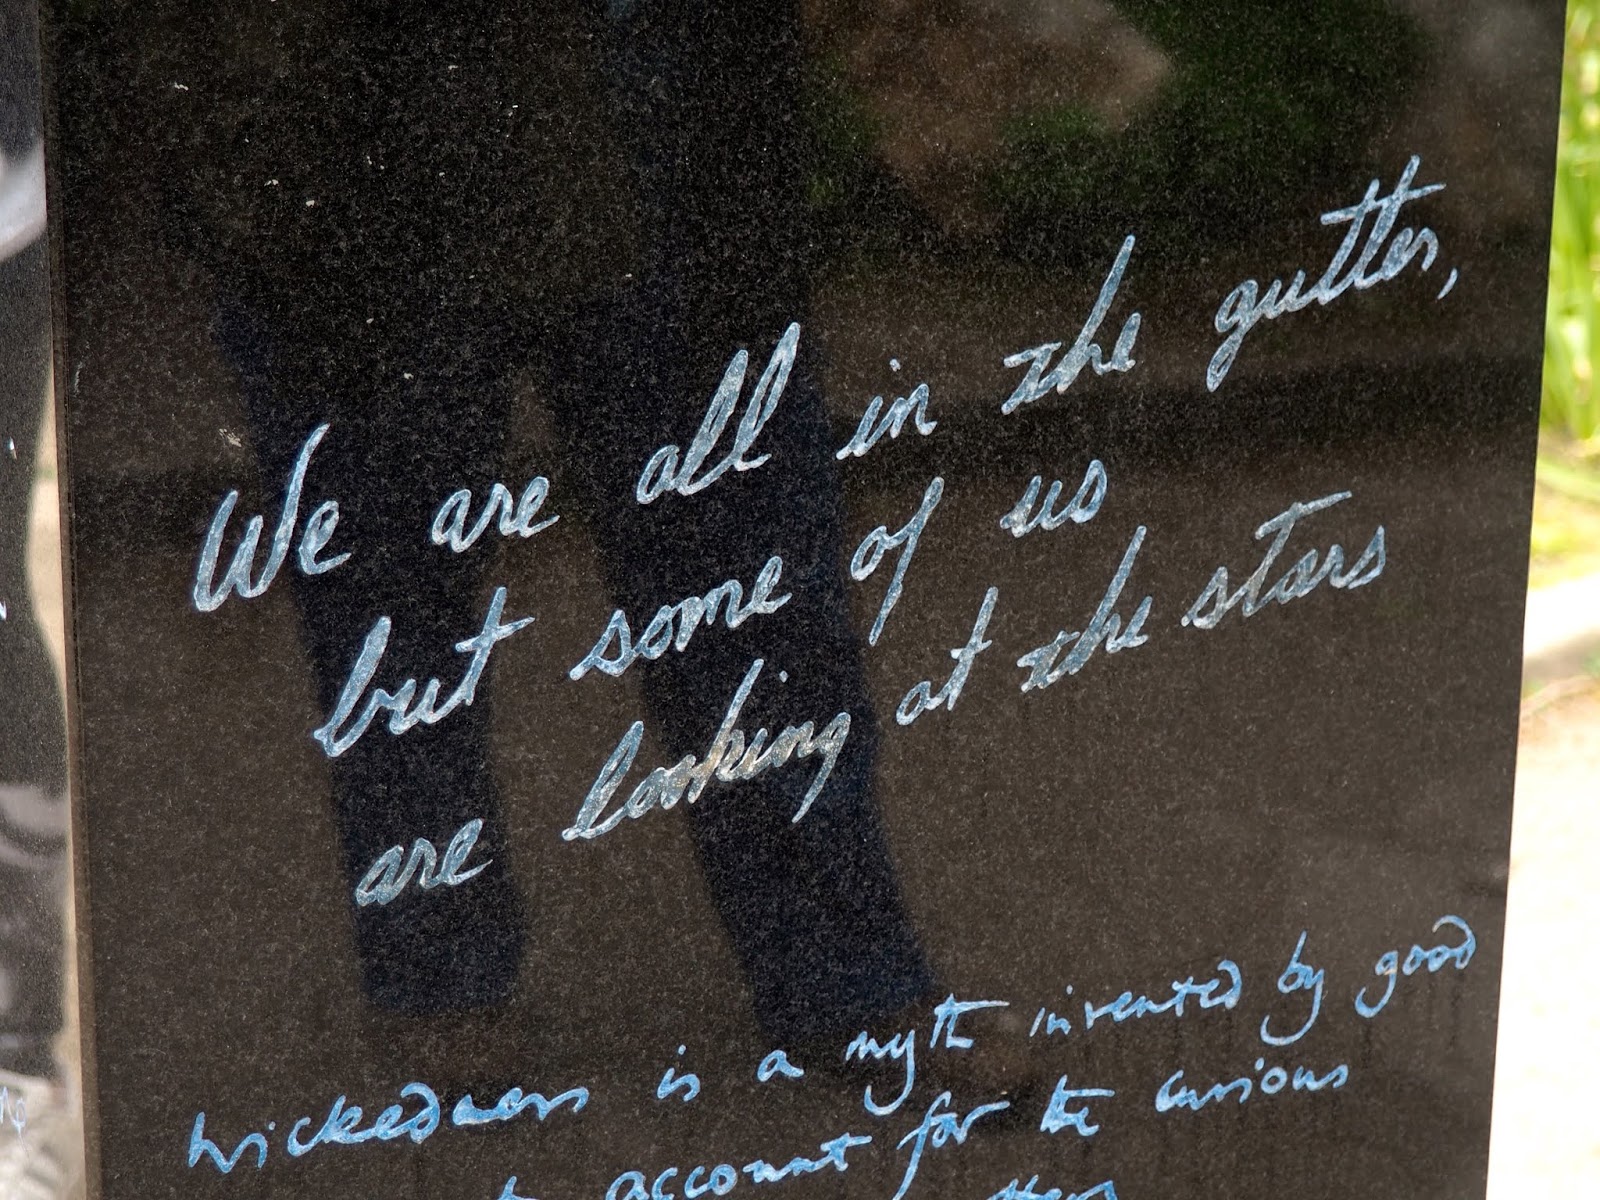 We are all in the gutter,
but some of us
are looking at the stars
Wickedness is a myth invented by good
to account for the curious